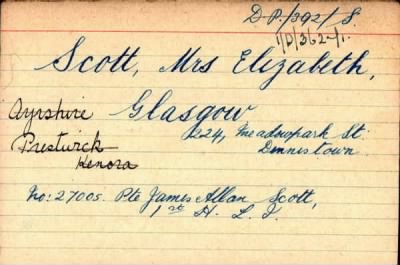 D.P./392/S.
1/D/362-/1.
Scott, Mrs Elizabeth,
Ayrshire Glasgow
224, Meadowpark St.
Prestwick Dennistown.
Kenora
No: 27005. Pte James Allan Scott,
1st H. L. I.